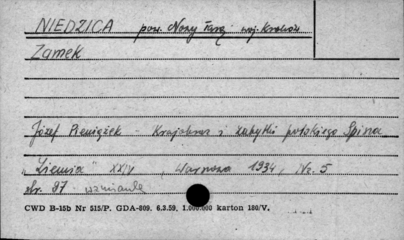 NIEDZICA pow. Nowy Targ woj. Kraków
Zamek
Józef Pieniążek - Krajobraz i zabytki polskiego Spisza
"Ziemia" XXIV, Warszawa 1934, Nr. 5
str. 97 wzmianka
CWD B-15b Nr 515/P. GDA-809. 6.3.59. 1.000.000 karton 180/V.